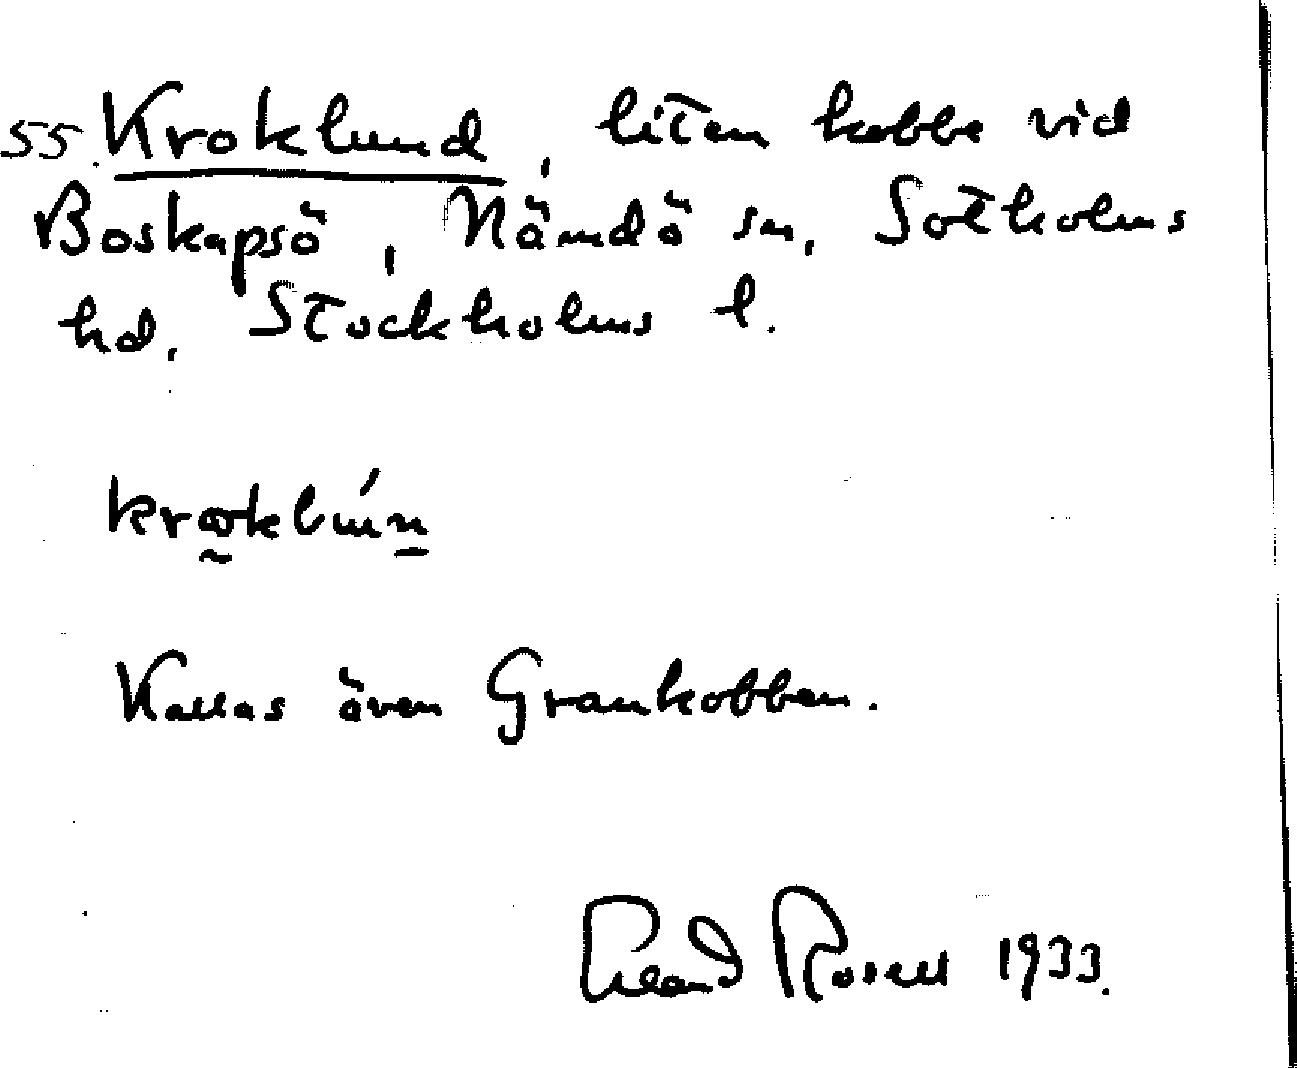 55. Kroklund, liten kobbe vid
Boskapsö, Nämdö sn, Sotholms
hd. Stockholms l.
Kallas även Grankobben.
Rosell 1933.